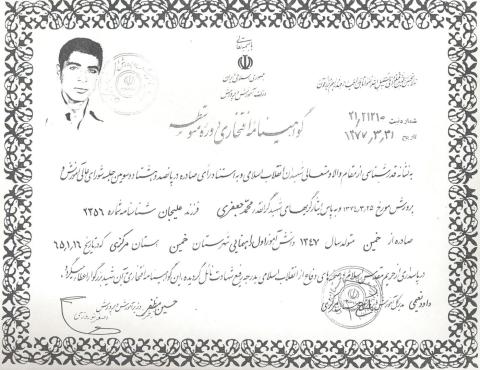 باسمه تعالی
جمهوری اسلامی ایران
وزارت آموزش و پرورش
گواهینامه افتخاری دوره متوسطه
شماره ثبت ۲۱/۲۱۲۱۰
تاریخ ۱۳۷۷/۳/۳۱
به نشانه قدرشناسی از مقام والا و متعالی شهیدان انقلاب اسلامی و به استناد رأی صادره در پانصد و هشتاد و سومین جلسه شورای عالی آموزش و
پرورش مورخ ۱۳۷۴/۳/۲۵ و به پاس ایثارگریهای شهید گرانقدر محمد جعفری فرزند علیجان شناسنامه شماره ۲۳۵۶
صادره از خمین متولد سال ۱۳۴۷ دانش آموز اول راهنمایی شهرستان خمین استان مرکزی که در تاریخ ۶۵/۱/۱۶
در پاسداری از حریم مقدس دفاع از انقلاب اسلامی به درجه رفیع شهادت نائل گردیده، این گواهینامه افتخاری به آن شهید بزرگوار اعطا میگردد.
حسین مظفر
وزیر آموزش و پرورش
داود نعیمی
مدیر کل آموزش و پرورش استان مرکزی